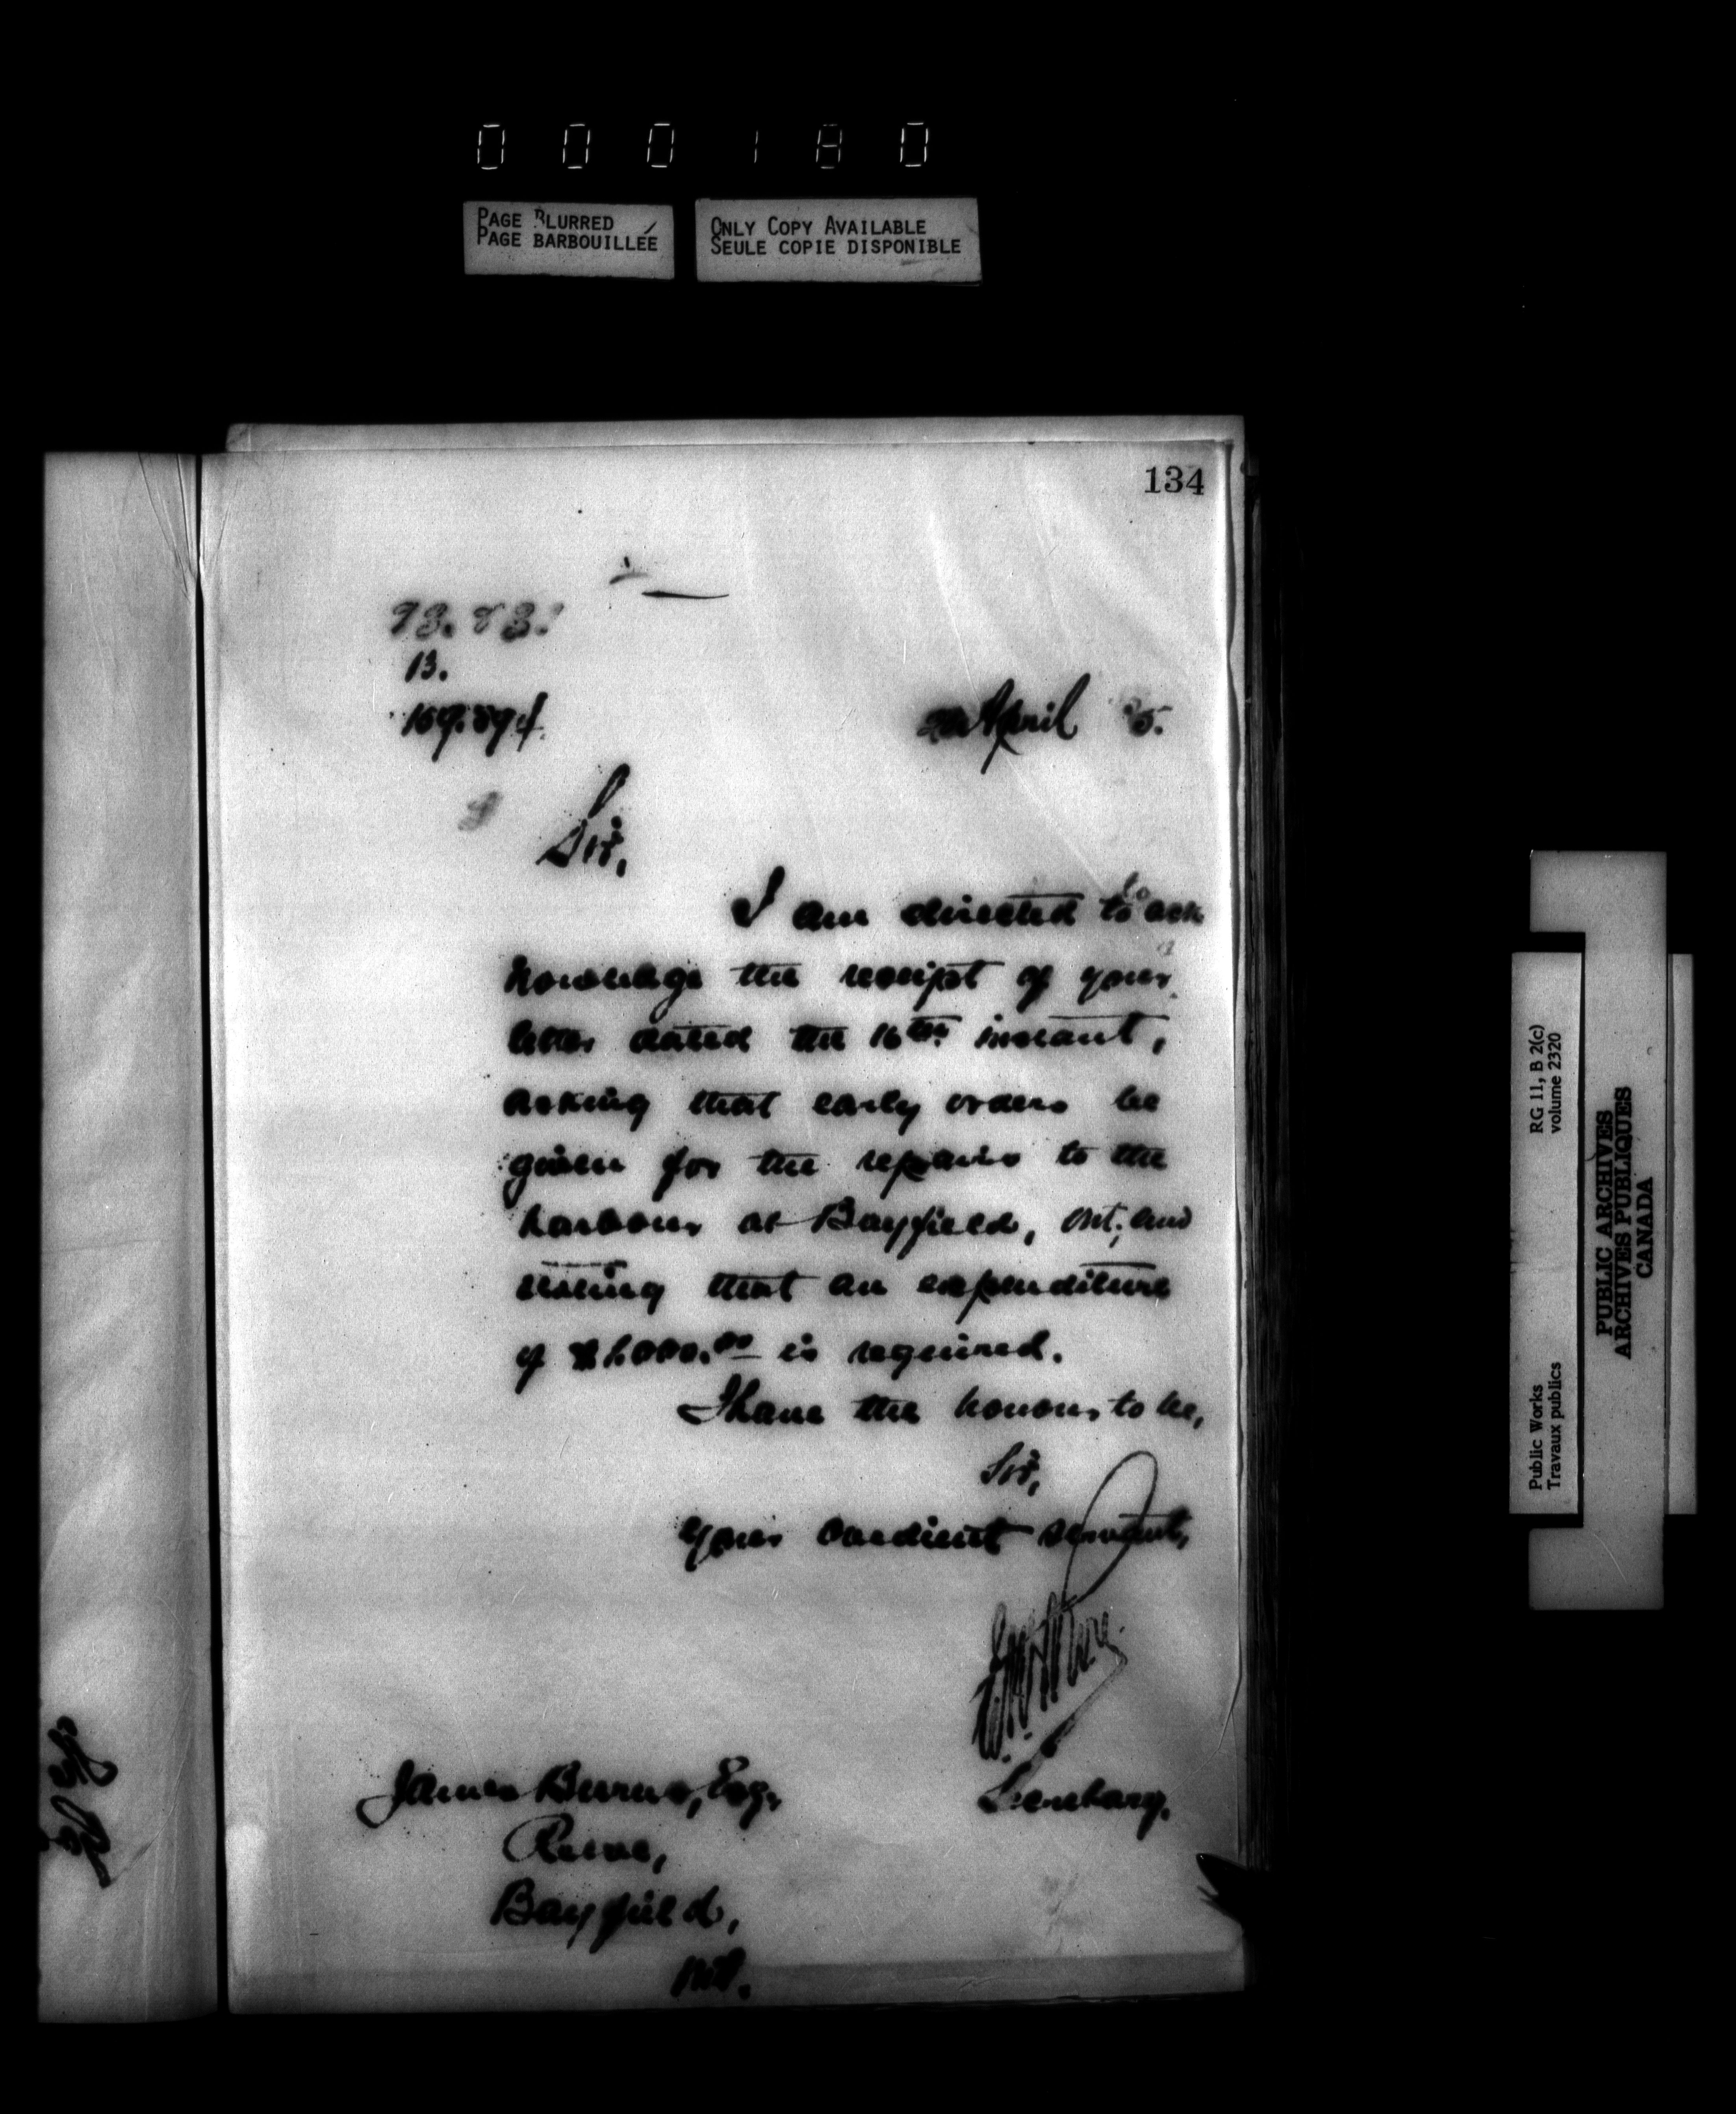 000180
PAGE BLURRED
PAGE BARBOUILLÉE
ONLY COPY AVAILABLE
SEULE COPIE DISPONIBLE
134
13.
April 5.
Sir,
I am directed to ack
nowledge the receipt of your
letter dated the 16th instant,
asking that early orders be
given for the repairs to the
harbour at Bayfield, Ont; and
stating that an expenditure
of is required.
I have the honour to be,
Sir,
Your obedient servant,
Secretary.
James Burns, Esq.
Reeve,
Bayfield,
Ont.
RG 11, B 2(c)
volume 2320
Public Works
Travaux publics
PUBLIC ARCHIVES
ARCHIVES PUBLIQUES
CANADA